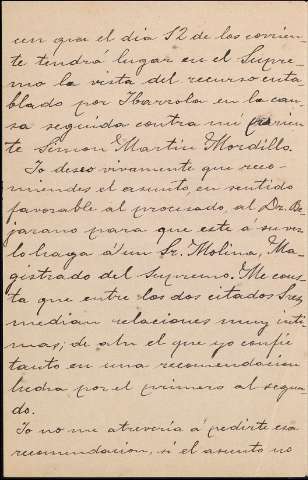 cen que el dia 12 de los corrien-
te tendrá lugar en el Supre-
mo la vista del recurso enta-
blado por Ibarrola en la cau-
sa seguida contra mi parien-
te Simon Martin Mordillo.
Yo deseo vivamente que reco-
miendes el asunto, en sentido
favorable al procesado, al Dr. Be-
jarano para que este a su vez
lo haga á un Sr. Molina, Ma-
gistrado del Supremo. Me cons-
ta que entre los dos citados Sres
median relaciones muy inti-
mas; de ahi el que yo confie
tanto en una recomendacion
hecha por el primero al segun-
do.
Yo no me atreveria á pedirte esa
recomendacion, si el asunto no